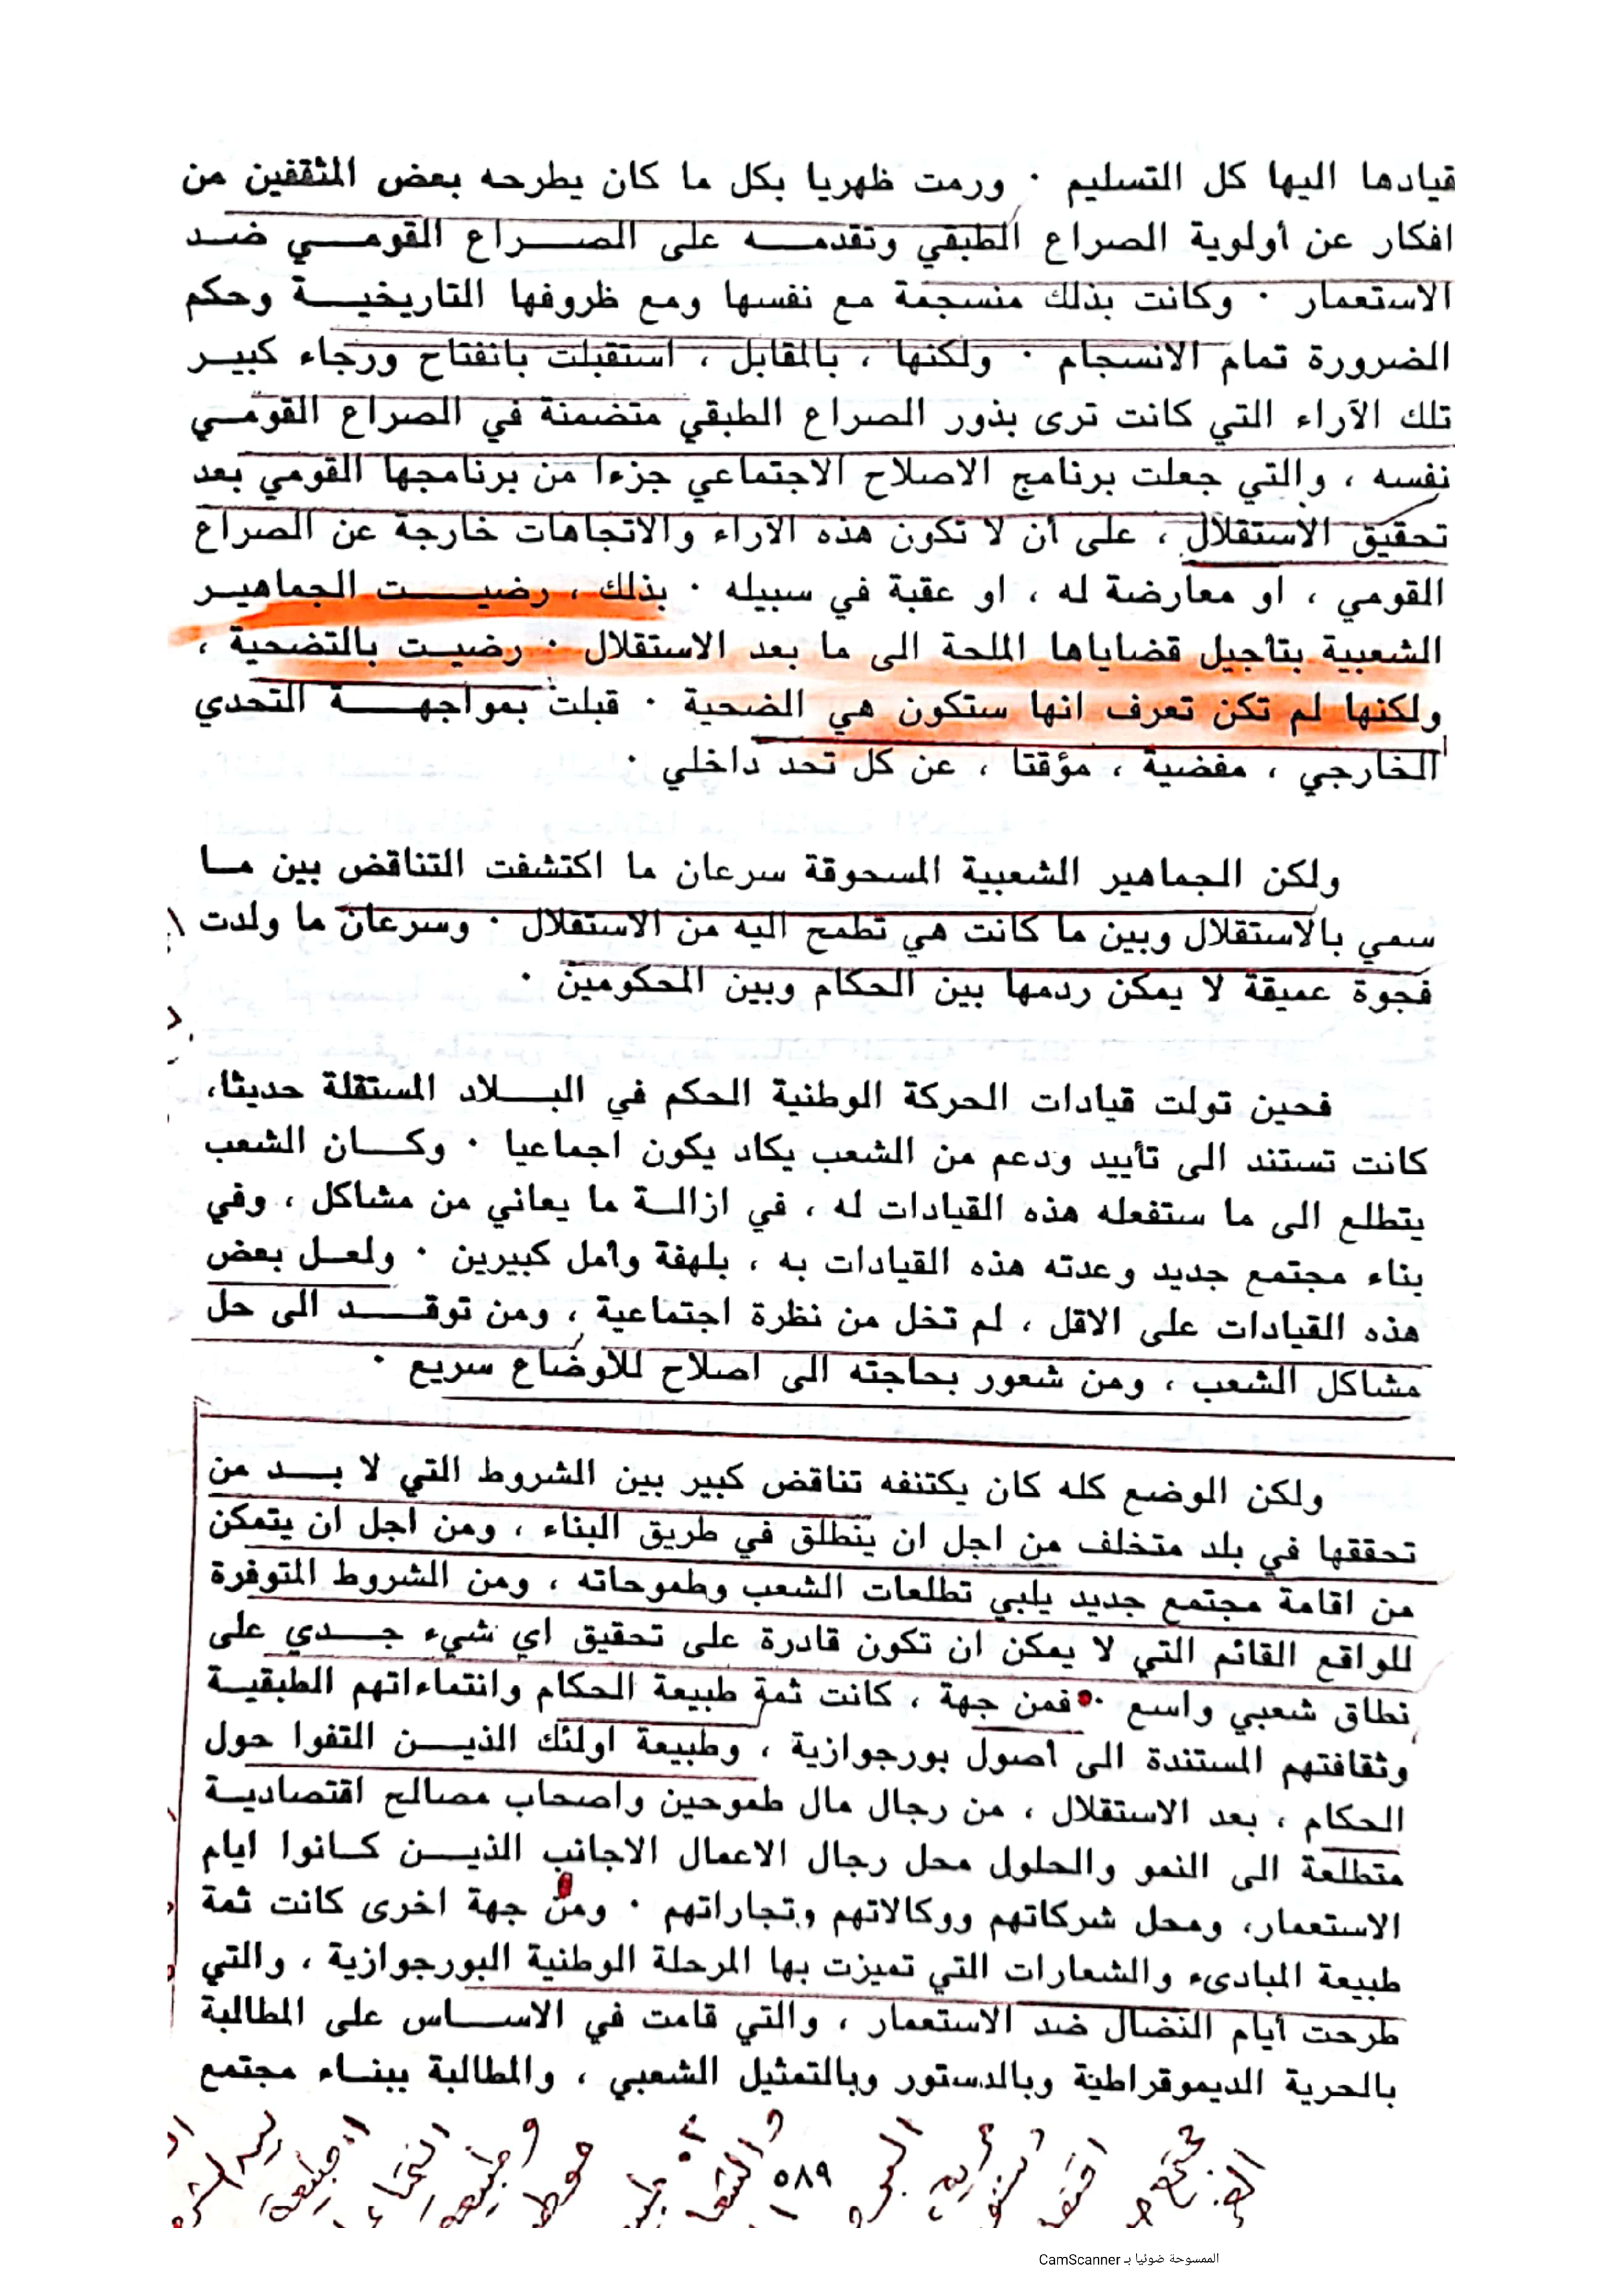 قيادها اليها كل التسليم ٠ ورمت ظهريا بكل ما كان يطرحه بعض المثقفين من
افكار عن أولوية الصراع الطبقي وتقدمه على الصراع القومي ضد
الاستعمار ٠ وكانت بذلك منسجمة مع نفسها ومع ظروفها التاريخية وحكم
الضرورة تمام الانسجام ٠ ولكنها ، بالمقابل ، استقبلت بانفتاح ورجاء كبير
تلك الآراء التي كانت ترى بذور الصراع الطبقي متضمنة في الصراع القومي
نفسه ، والتي جعلت برنامج الاصلاح الاجتماعي جزءا من برنامجها القومي بعد
تحقيق الاستقلال ، على أن لا تكون هذه الآراء والاتجاهات خارجة عن الصراع
القومي ، او معارضة له ، او عقبة في سبيله ٠ بذلك ، رضيت الجماهير
الشعبية بتأجيل قضاياها الملحة الى ما بعد الاستقلال ٠ رضيت بالتضحية ،
ولكنها لم تكن تعرف انها ستكون هي الضحية ٠ قبلت بمواجهة التحدي
الخارجي ، مغضية ، مؤقتا ، عن كل تحد داخلي ٠
ولكن الجماهير الشعبية المسحوقة سرعان ما اكتشفت التناقض بين ما
سمي بالاستقلال وبين ما كانت هي تطمح اليه من الاستقلال ٠ وسرعان ما ولدت
فجوة عميقة لا يمكن ردمها بين الحكام وبين المحكومين ٠
فحين تولت قيادات الحركة الوطنية الحكم في البلاد المستقلة حديثا،
كانت تستند الى تأييد ودعم من الشعب يكاد يكون اجماعيا ٠ وكان الشعب
يتطلع الى ما ستفعله هذه القيادات له ، في ازالة ما يعاني من مشاكل ، وفي
بناء مجتمع جديد وعدته هذه القيادات به ، بلهفة وأمل كبيرين ٠ ولعل بعض
هذه القيادات على الاقل ، لم تخل من نظرة اجتماعية ، ومن توقد الى حل
مشاكل الشعب ، ومن شعور بحاجته الى اصلاح للأوضاع سريع ٠
ولكن الوضع كله كان يكتنفه تناقض كبير بين الشروط التي لا بد من
تحققها في بلد متخلف من اجل ان ينطلق في طريق البناء ، ومن اجل ان يتمكن
من اقامة مجتمع جديد يلبي تطلعات الشعب وطموحاته ، ومن الشروط المتوفرة
للواقع القائم التي لا يمكن ان تكون قادرة على تحقيق اي شيء جدي على
نطاق شعبي واسع ٠ فمن جهة ، كانت ثمة طبيعة الحكام وانتماءاتهم الطبقية
وثقافتهم المستندة الى أصول بورجوازية ، وطبيعة اولئك الذين التفوا حول
الحكام ، بعد الاستقلال ، من رجال مال طموحين واصحاب مصالح اقتصادية
متطلعة الى النمو والحلول محل رجال الاعمال الاجانب الذين كانوا ايام
الاستعمار، ومحل شركاتهم ووكالاتهم وتجاراتهم ٠ ومن جهة اخرى كانت ثمة
طبيعة المبادىء والشعارات التي تميزت بها المرحلة الوطنية البورجوازية ، والتي
طرحت أيام النضال ضد الاستعمار ، والتي قامت في الاساس على المطالبة
بالحرية الديموقراطية وبالدستور وبالتمثيل الشعبي ، والمطالبة ببناء مجتمع
٥٨٩
الممسوحة ضوئيا بـ CamScanner